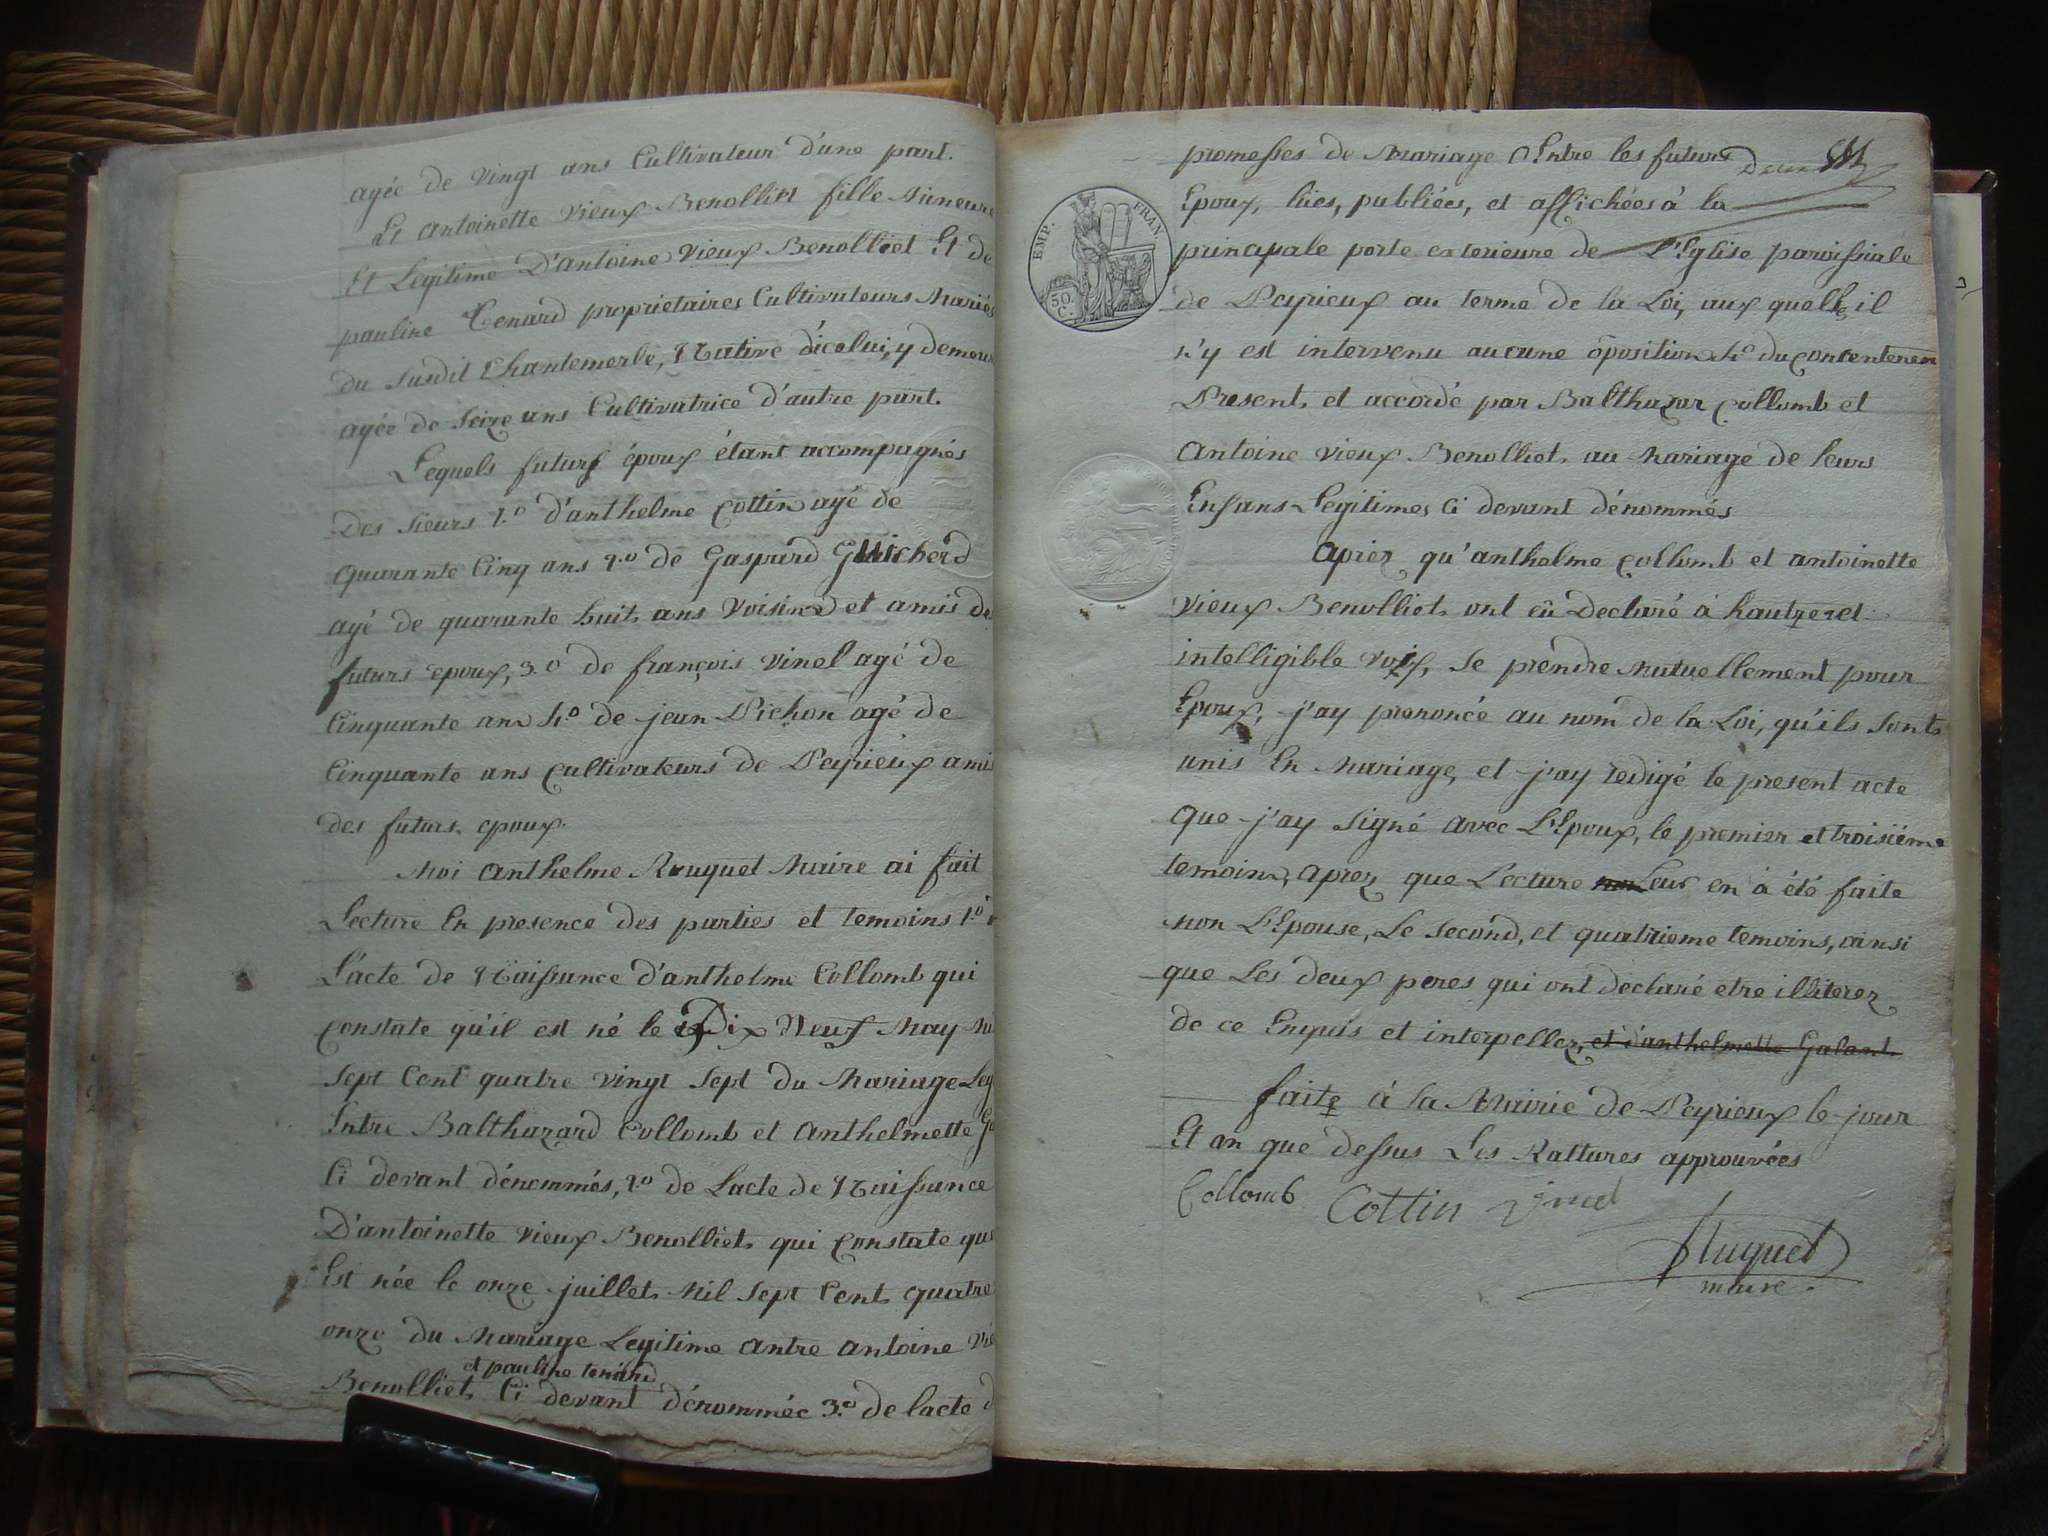 agée de Vingt ans Cultivateur d'une part.
Et Antoinette Vieux Benolliet fille Mineure
Et Legitime D'antoine Vieux Benolliet Et de
pauline Tenard propriétaires Cultivateurs Mariés
du susdit Chantemerle, Native d'icelui, y demeu
agée de Seize ans Cultivatrice d'autre part.
Lequels futurs époux étant accompagnés
Des sieurs 1.o d'anthelme Cottin agé de
quarante Cinq ans 2.o de Gaspard Guicherd
agé de quarante huit ans Voisins et amis de
futurs epoux, 3.o de françois Vinel agé de
Cinquante ans 4.o de jean Pichon agé de
Cinquante ans Cultivateurs de Peyrieux amis
des futurs epoux.
Moi Anthelme Ruquet Maire ai fait
Lecture En presence des parties et temoins 1.o
L'acte de Naissance d'anthelme Collomb qui
constate qu'il est né le Dix Neuf May Mi
Sept Cent quatre vingt Sept du Mariage Leg
Entre Balthazard Collomb et Anthelmette Ga
Ci devant dénommés, 2.o de Lacte de Naissance
D'antoinette Vieux Benolliet qui Constate que
Est née le onze juillet Mil Sept Cent quatre
onze du Mariage Legitime antre antoine Vie
et pauline tenard
Benolliet Ci devant dénommée 3.o de lacte d
promesses de Mariage Entre les futurs
Deux
Epoux, lües, publiées, et affichées à la
EMP. FRAN
50. C.
principale porte exterieure de L'Eglise paroissiale
de Peyrieux au terme de la Loi, aux quelle il
n'y est intervenu aucune oposition 4.o du consentemen
Present et accordé par Balthazar Collomb et
Antoine Vieux Benolliet au Mariage de leurs
Enfans Legitimes Ci devant dénommés
Aprez qu'anthelme Collomb et antoinette
Vieux Benolliet ont eû Declaré à haute et
intelligible voix, Se prendre Mutuellement pour
Epoux, j'ay prononcé au nom de la Loi, qu'ils Sont
unis En Mariage, et j'ay redigé le present acte
que j'ay Signé avec L'Epoux, le premier et troisiéme
temoins, Aprez que Lecture Leur en à été faite
non L'Epouse, Le Second, et quatrieme temoins, ainsi
que Les deux peres qui ont declaré etre illiterez
de ce Enquis et interpellez, et d'anthelmette Galant
faite à la Mairie de Peyrieux le jour
Et an que dessus Les Rattures approuvées
Collomb Cottin Vinel
Ruquet
maire.